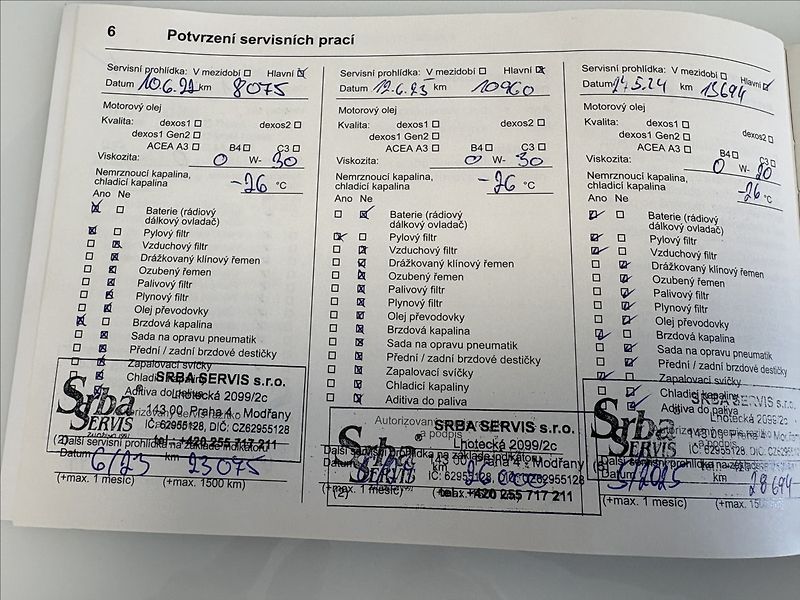 6 Potvrzení servisních prací
Servisní prohlídka: V mezidobí Hlavní
Datum 10.6.22 km 8075
Motorový olej
Kvalita: dexos1 dexos2
dexos1 Gen2
ACEA A3 B4 C3
Viskozita: 0 W- 30
Nemrznoucí kapalina,
chladicí kapalina -26 °C
Ano Ne
Baterie (rádiový
dálkový ovladač)
Pylový filtr
Vzduchový filtr
Drážkovaný klínový řemen
Ozubený řemen
Palivový filtr
Plynový filtr
Olej převodovky
Brzdová kapalina
Sada na opravu pneumatik
Přední / zadní brzdové destičky
Zapalovací svíčky
Chladicí
Aditiva do
SRBA SERVIS s.r.o.
Lhotecká 2099/2c
143 00 Praha 4 - Modřany
IČ: 62955128, DIČ: CZ62955128
tel.: +420 255 717 211
Srba
SERVIS
(2) Další servisní prohlídka na základě indikátoru
Datum 6/23 km 23075
(+max. 1 měsíc) (+max. 1500 km)
Servisní prohlídka: V mezidobí Hlavní
Datum 12.6.23 km 10960
Motorový olej
Kvalita: dexos1 dexos2
dexos1 Gen2
ACEA A3 B4 C3
Viskozita: 0 W- 30
Nemrznoucí kapalina,
chladicí kapalina -26 °C
Ano Ne
Baterie (rádiový
dálkový ovladač)
Pylový filtr
Vzduchový filtr
Drážkovaný klínový řemen
Ozubený řemen
Palivový filtr
Plynový filtr
Olej převodovky
Brzdová kapalina
Sada na opravu pneumatik
Přední / zadní brzdové destičky
Zapalovací svíčky
Chladicí kapaliny
Aditiva do paliva
Autorizovaný
a podpis
SRBA SERVIS s.r.o.
Lhotecká 2099/2c
143 00 Praha 4 - Modřany
IČ: 62955128, DIČ: CZ62955128
tel.: +420 255 717 211
Srba
SERVIS
Další servisní prohlídka na základě indikátoru
Datum
(+max. 1 měsíc)
(2)
Servisní prohlídka: V mezidobí Hlavní
Datum km 13694
Motorový olej
Kvalita: dexos1 dexos2
dexos1 Gen2
ACEA A3 B4 C3
Viskozita: 0 W-
Nemrznoucí kapalina,
chladicí kapalina -26 °C
Ano Ne
Baterie (rádiový
dálkový ovladač)
Pylový filtr
Vzduchový filtr
Drážkovaný klínový řemen
Ozubený řemen
Palivový filtr
Plynový filtr
Olej převodovky
Brzdová kapalina
Sada na opravu pneumatik
Přední / zadní brzdové destičky
Zapalovací svíčky
Chladicí kapalina
Aditiva do paliva
SRBA SERVIS s.r.o.
Lhotecká 2099/2c
Srba
SERVIS
Datum 5/2025 km 28694
(+max. 1 měsíc)